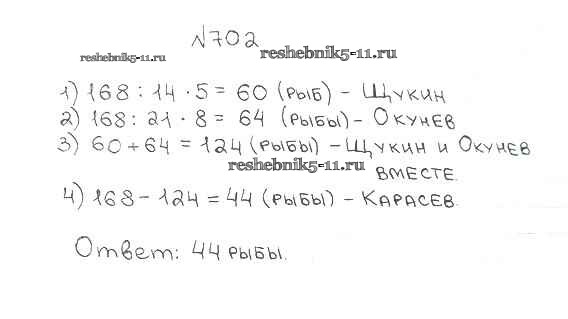 №702
reshebnik5-11.ru
reshebnik5-11.ru
1) 168 : 14 · 5 = 60 (рыб) - Щукин
2) 168 : 21 · 8 = 64 (рыбы) - Окунев
3) 60 + 64 = 124 (рыбы) - Щукин и Окунев
reshebnik5-11.ru
вместе.
4) 168 - 124 = 44 (рыбы) - Карасев.
Ответ: 44 рыбы.